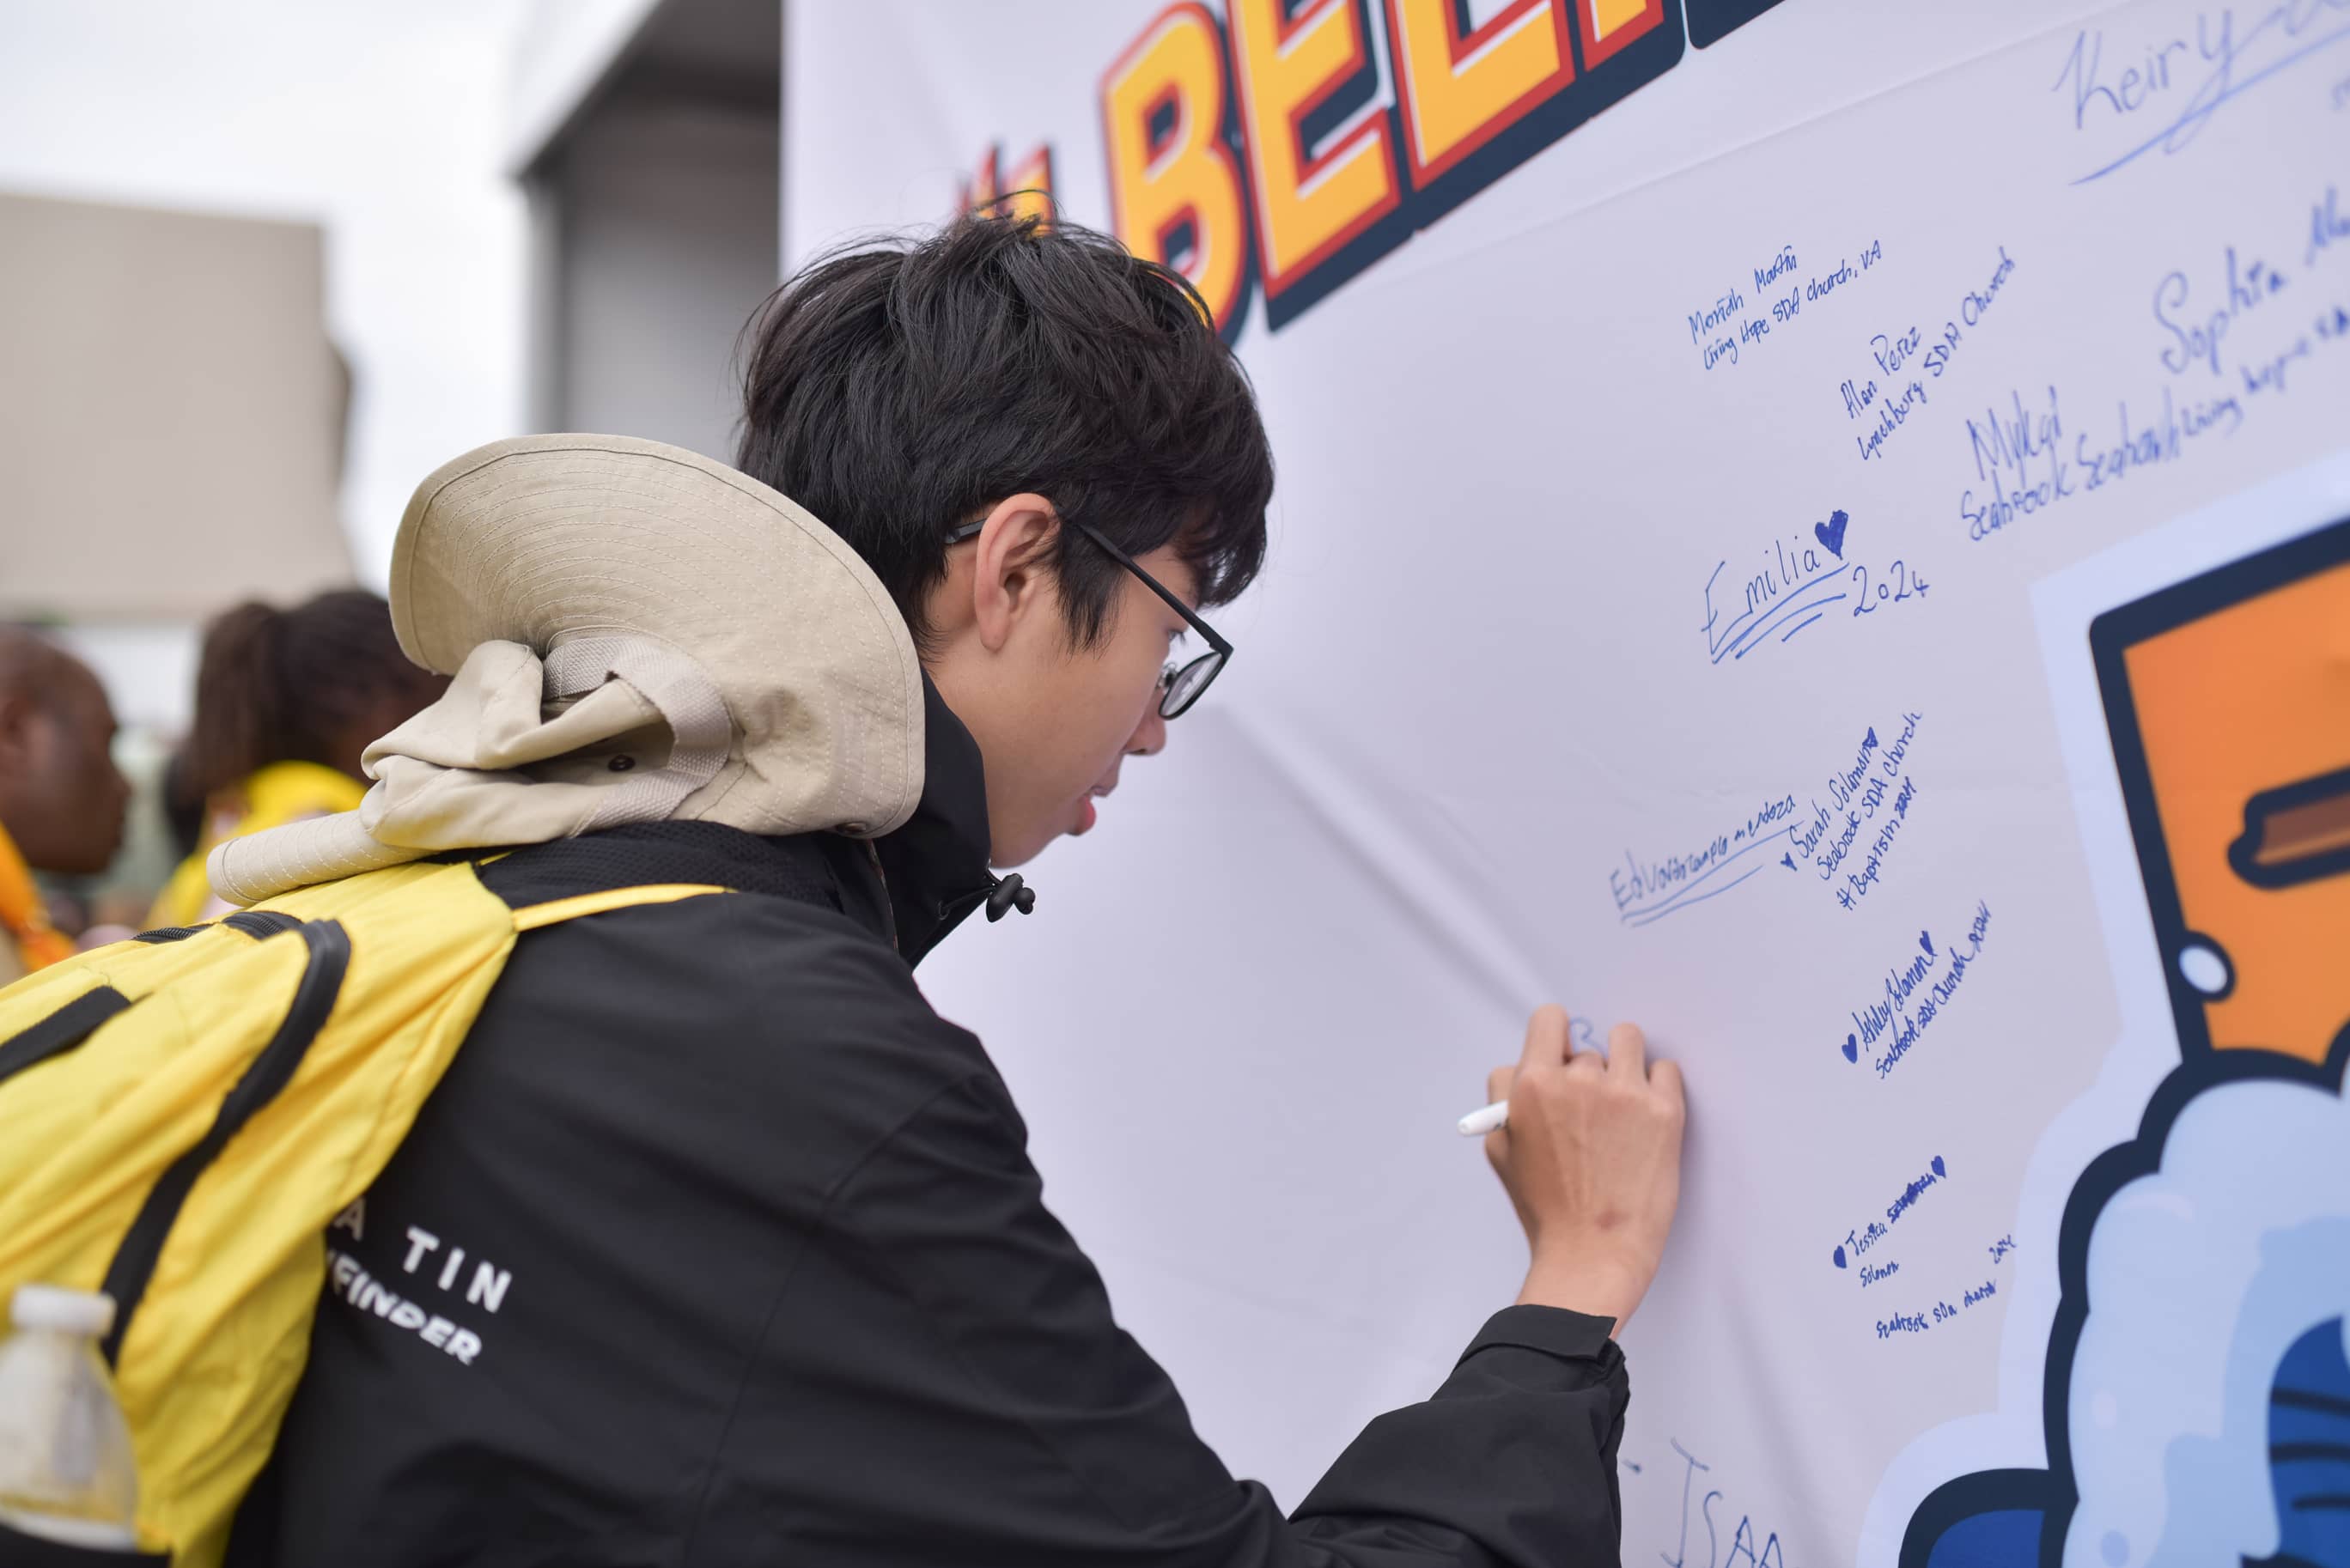 Keiry
Moriah Martin
Living Hope SDA church, VA
Alan Perez
Lynchburg SDA Church
Sophia
Living hope SDA
Mykai
Seabrook Seahawk
Emilia
2024
Sarah Solomon
Seabrook SDA Church
# Baptism 2024
Ashley Solomon
Seabrook SDA Church 2024
Jessica
Solomon
2024
Seabrook SDA church
A TIN
FINDER